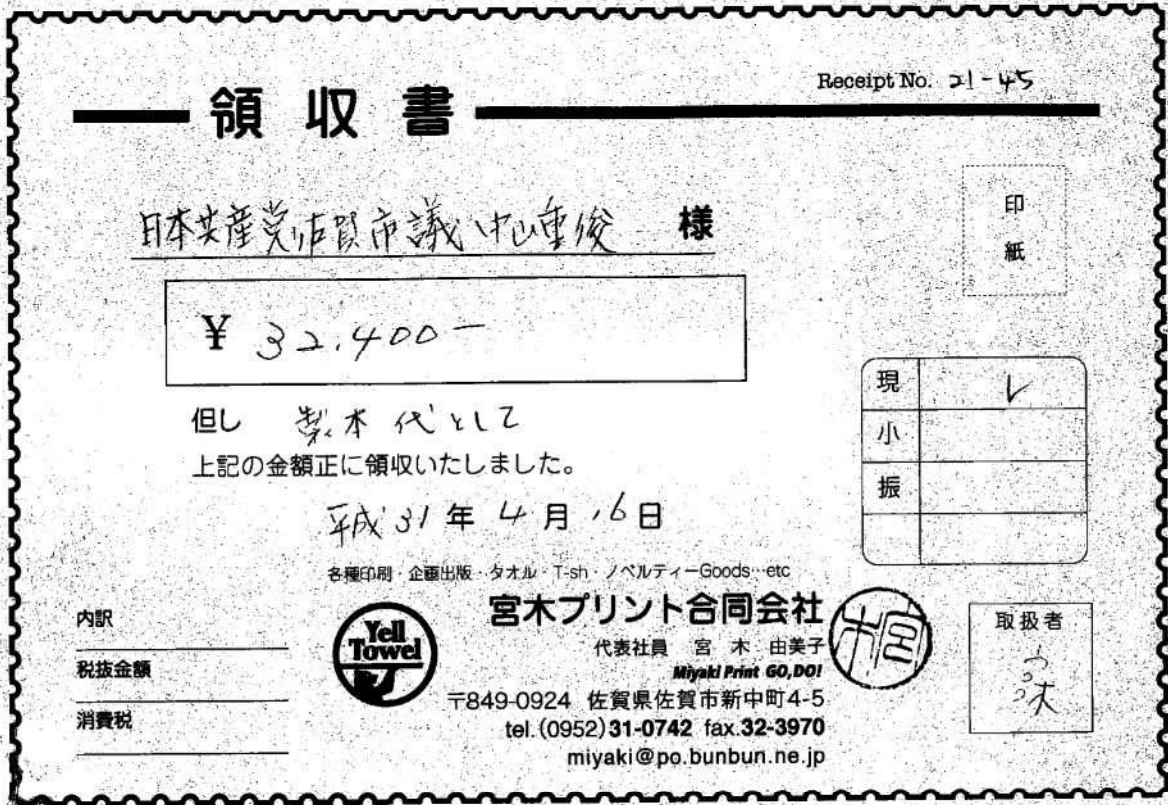 Receipt No. 21-45
領収書
日本共産党佐賀市議 中山重俊 様
印紙
¥ 32,400-
現 レ
小
振
但し 製本代として
上記の金額正に領収いたしました。
平成31年4月16日
各種印刷・企画出版・タオル・T-sh・ノベルティーGoods…etc
内訳
税抜金額
消費税
Yell
Towel
宮木プリント合同会社
代表社員 宮木 由美子
Miyaki Print GO,DO!
〒849-0924 佐賀県佐賀市新中町4-5
tel.(0952)31-0742 fax.32-3970
miyaki@po.bunbun.ne.jp
宮木
取扱者